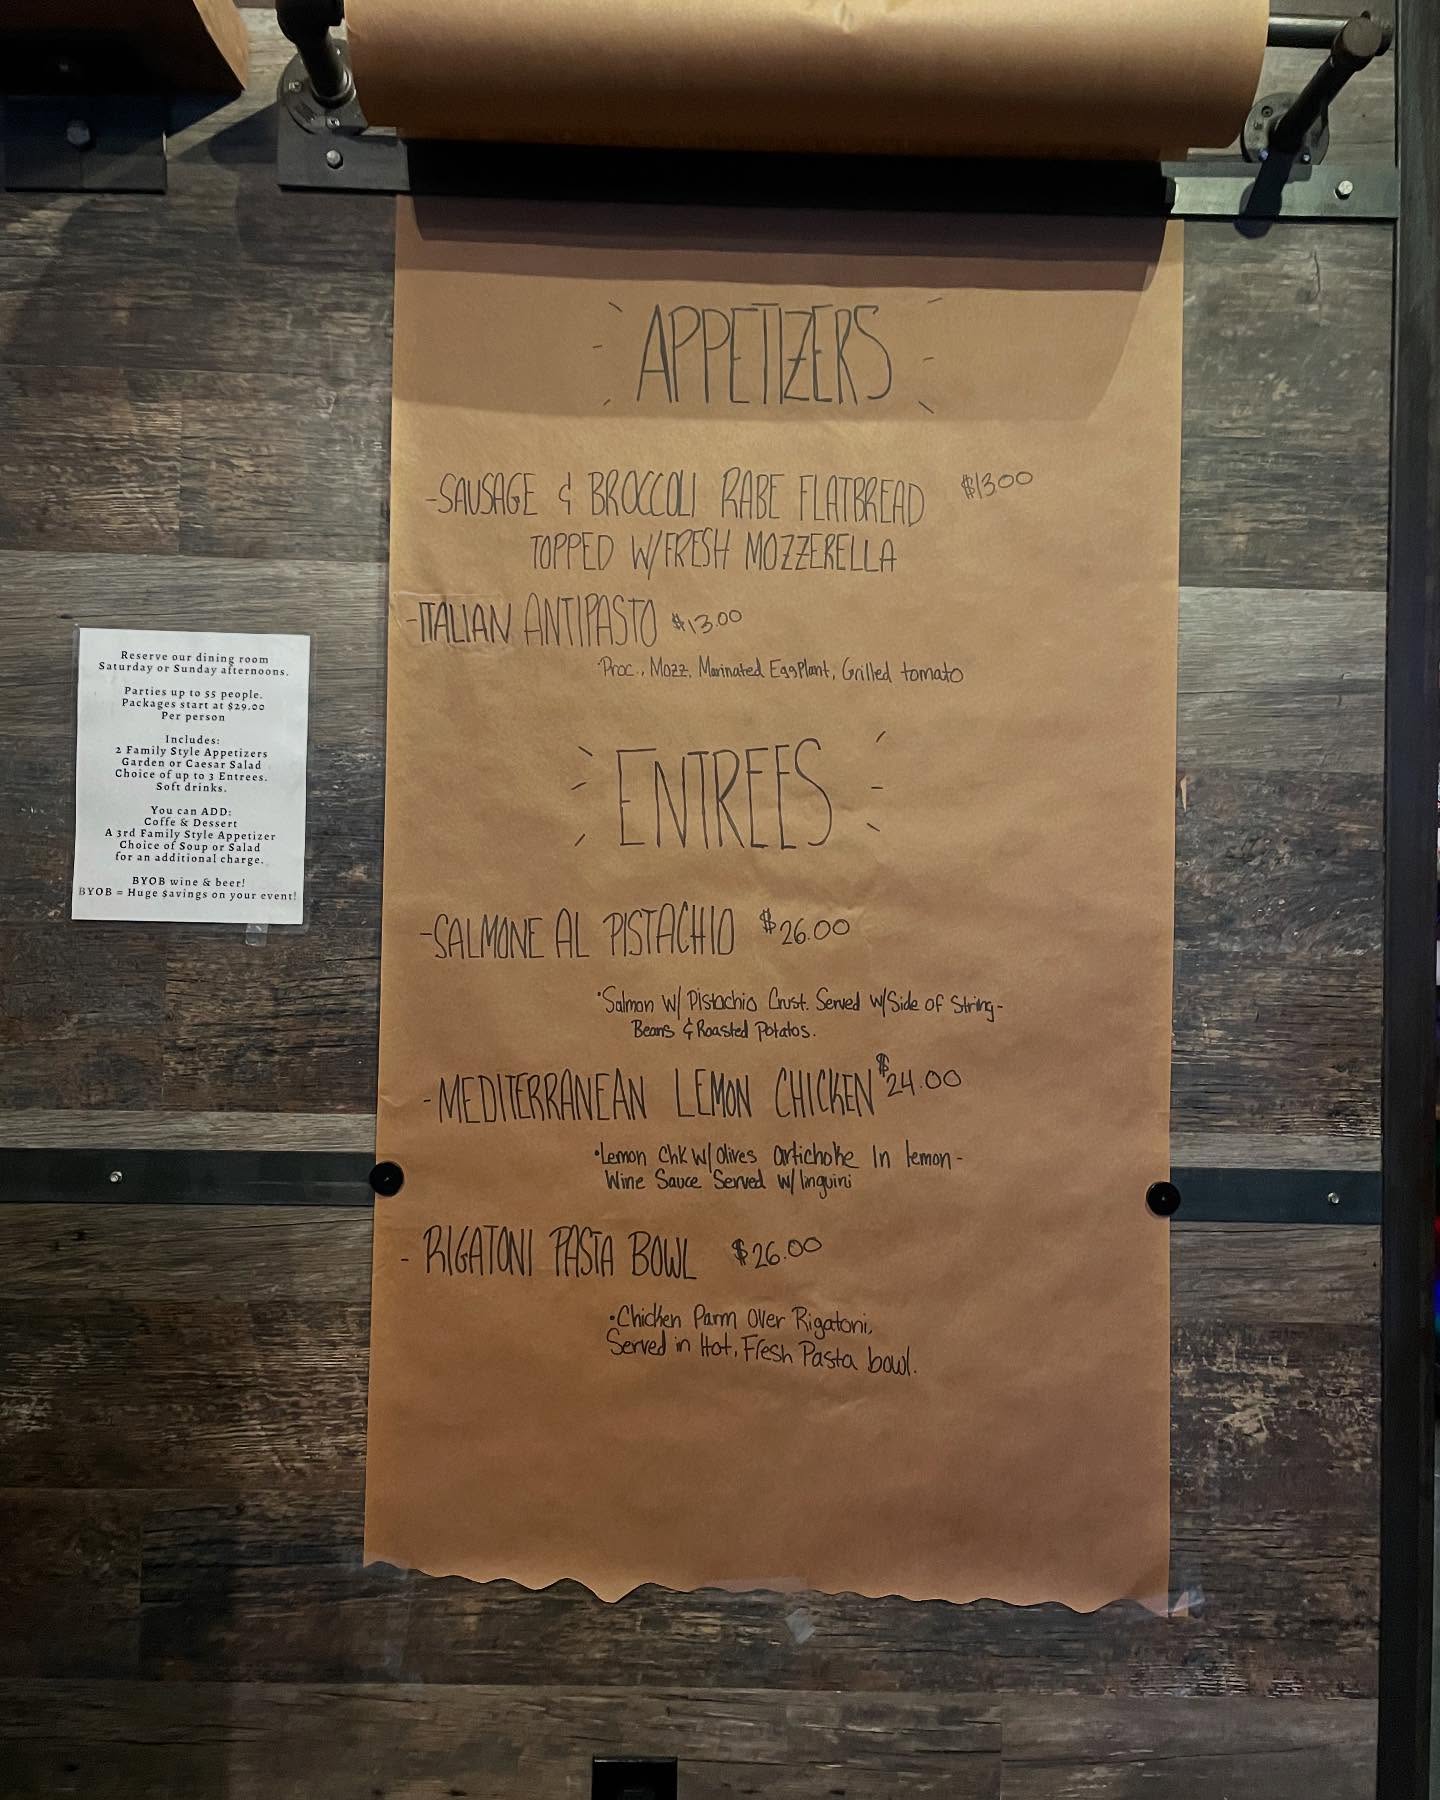 APPETIZERS
-SAUSAGE & BROCCOLI RABE FLATBREAD $13.00
TOPPED W/FRESH MOZZERELLA
-ITALIAN ANTIPASTO $13.00
·Proc., Mozz, Marinated EggPlant, Grilled tomato
ENTREES
-SALMONE AL PISTACHIO $26.00
·Salmon W/ Pistachio Crust. Served W/Side of String-
Beans & Roasted Potatos.
-MEDITERRANEAN LEMON CHICKEN $24.00
·Lemon Chk W/ Olives artichoke In lemon-
Wine Sauce Served W/ linguini
- RIGATONI PASTA BOWL $26.00
·Chicken Parm Over Rigatoni,
Served in Hot, Fresh Pasta bowl.
Reserve our dining room
Saturday or Sunday afternoons.
Parties up to 55 people.
Packages start at $29.00
Per person
Includes:
2 Family Style Appetizers
Garden or Caesar Salad
Choice of up to 3 Entrees.
Soft drinks.
You can ADD:
Coffe & Dessert
A 3rd Family Style Appetizer
Choice of Soup or Salad
for an additional charge.
BYOB wine & beer!
BYOB = Huge $avings on your event!